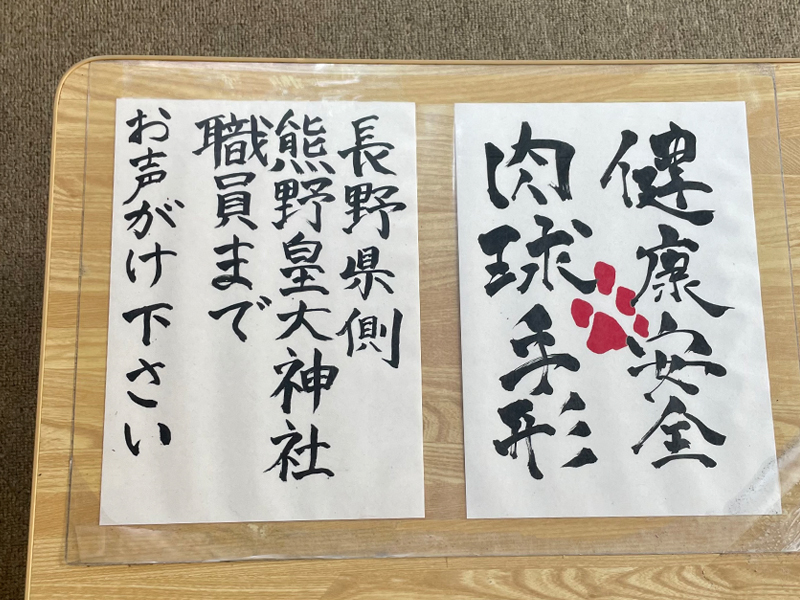 健康安全
肉球手形
長野県側
熊野皇大神社
職員まで
お声がけ下さい